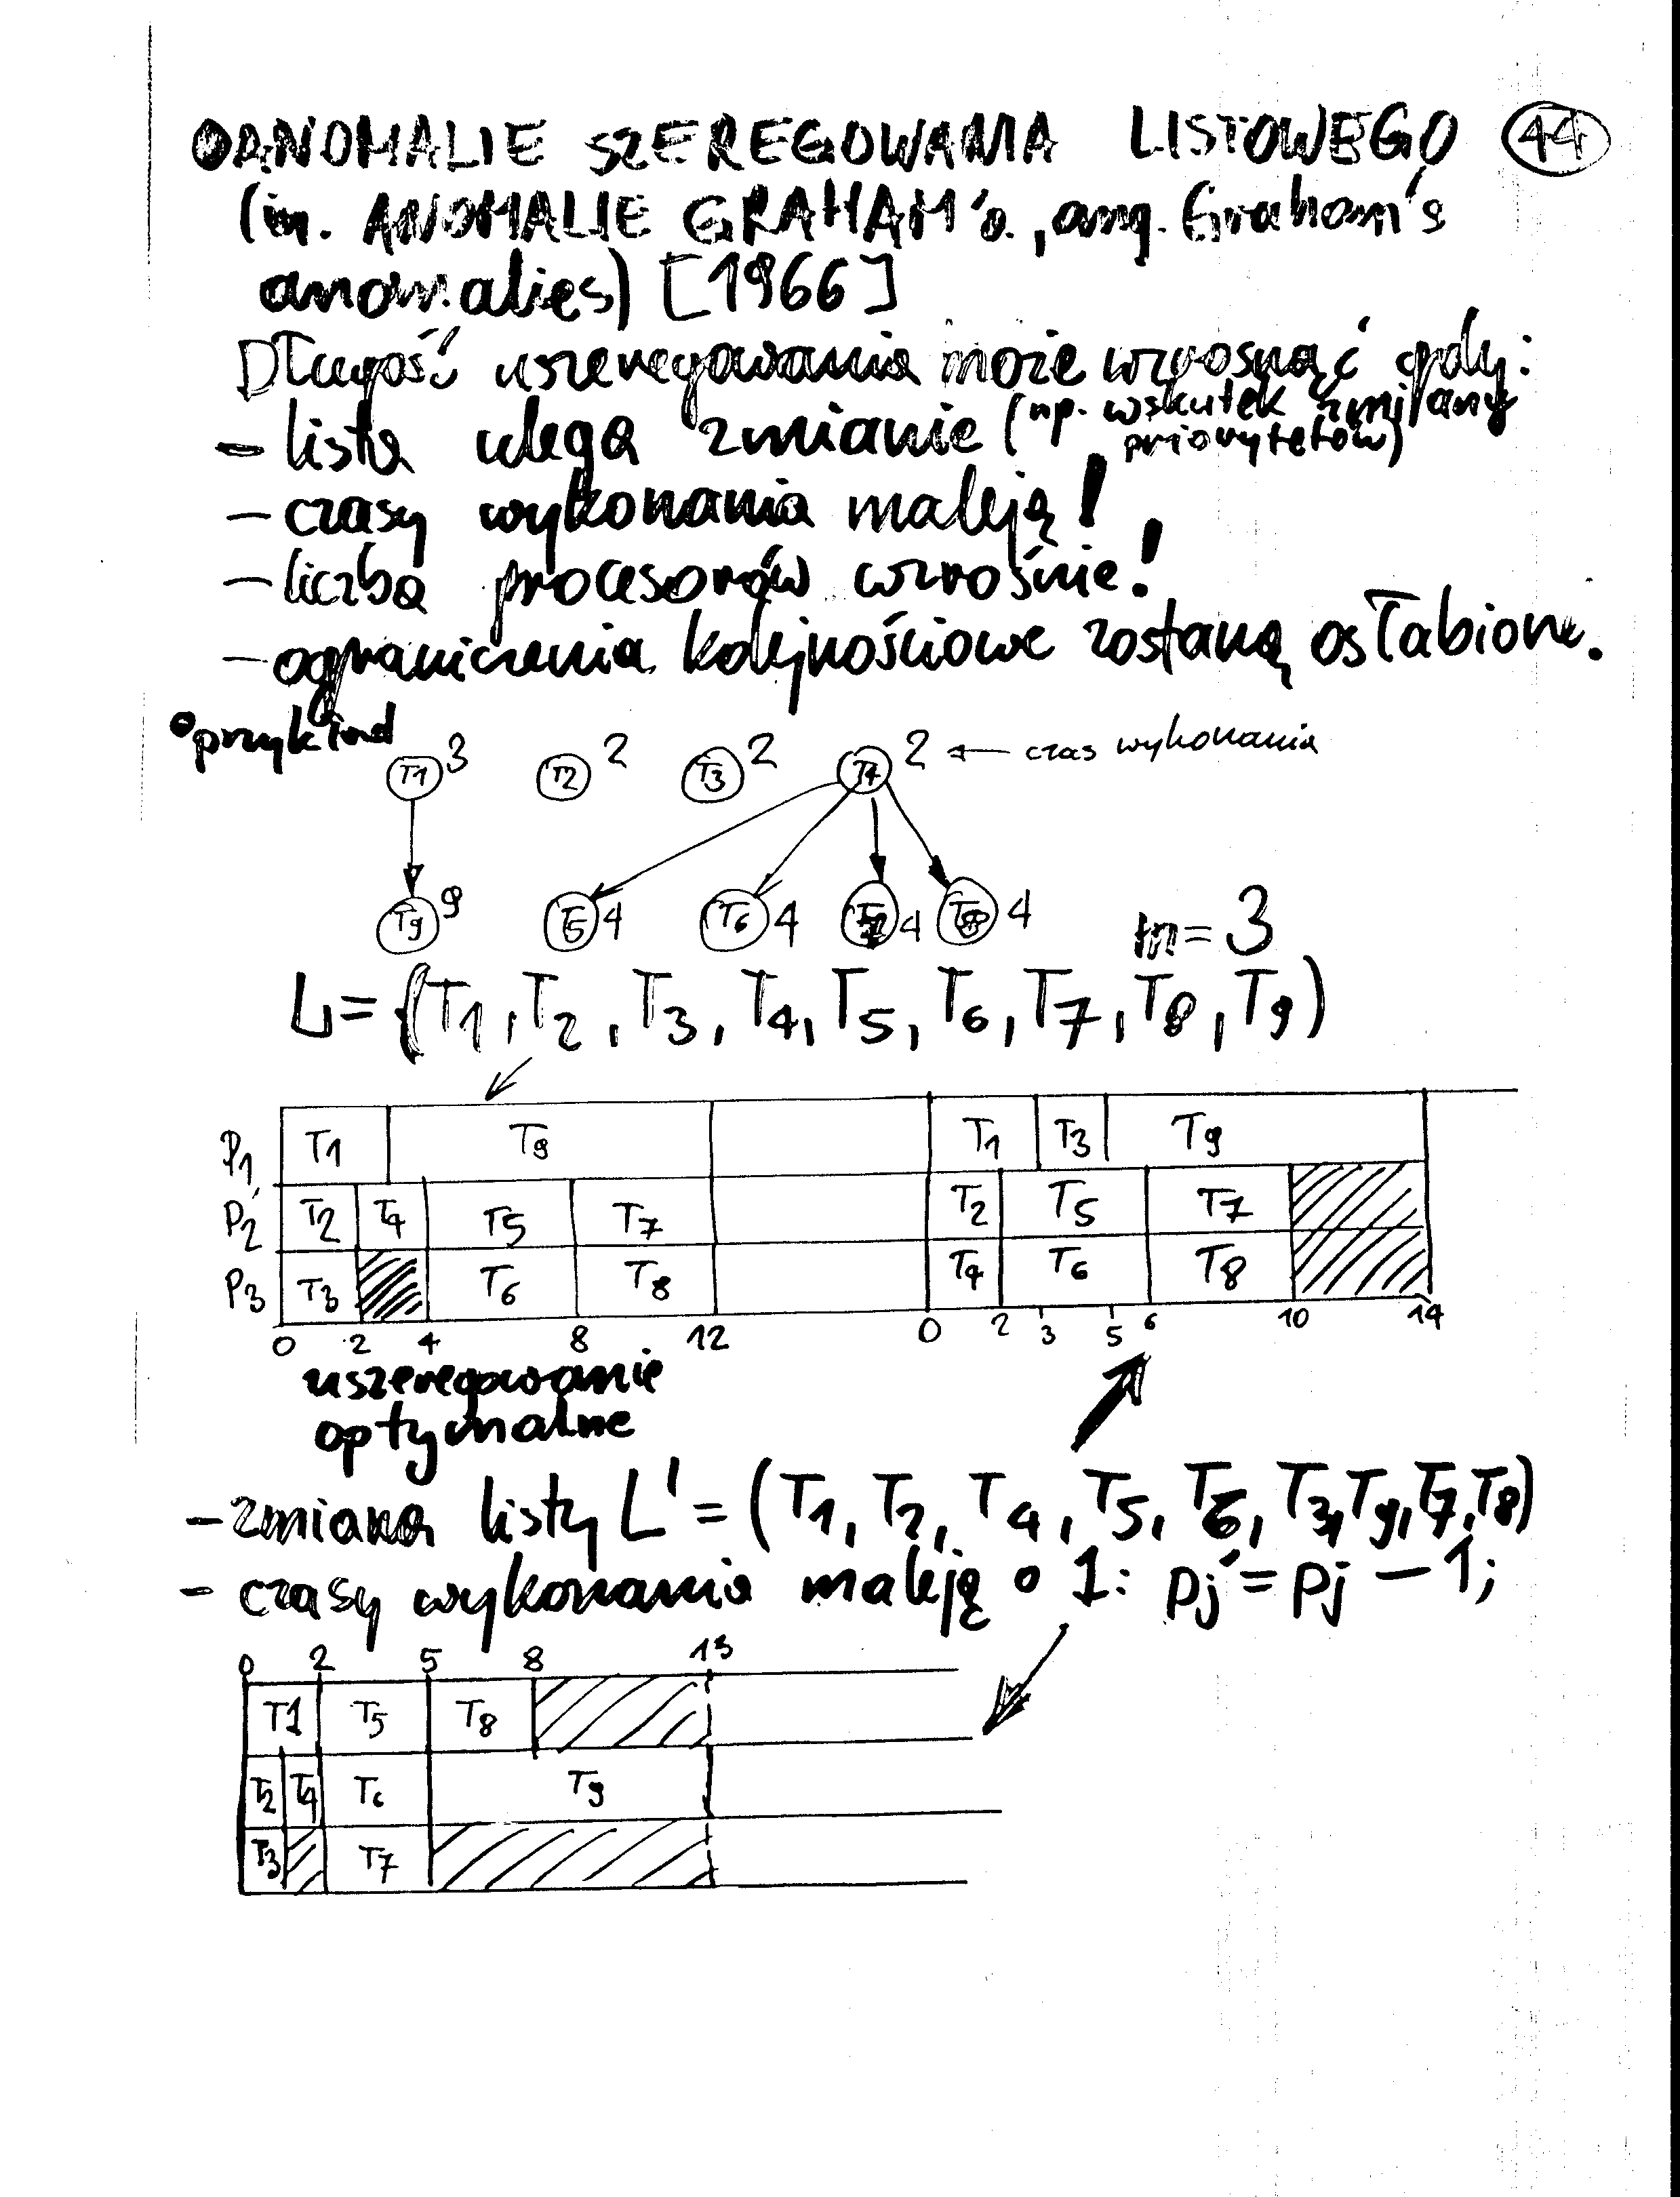 ANOMALIE SZEREGOWANIA LISTOWEGO 44
(in. ANOMALIE GRAHAM'a, ang. Graham's
anomalies) [1966]
Długość uszeregowania może wzrosnąć gdy:
- lista ulega zmianie (np. wskutek zmiany
priorytetów)
- czasy wykonania maleją!
- liczba procesorów wzrośnie!
- ograniczenia kolejnościowe zostaną osłabione.
przykład
T1 3 T2 2 T3 2 T4 2 ← czas wykonania
T9 9 T5 4 T6 4 T7 4 T8 4 m=3
L = (T1, T2, T3, T4, T5, T6, T7, T8, T9)
P1 T1 T9 T1 T3 T9
P2 T2 T4 T5 T7 T2 T5 T7
P3 T3 T6 T8 T4 T6 T8
0 2 4 8 12 0 2 3 5 6 10 14
uszeregowanie
optymalne
- zmiana listy L' = (T1, T2, T4, T5, T6, T3, T9, T7, T8)
- czasy wykonania maleją o 1: pj' = pj - 1;
0 2 5 8 13
T1 T5 T8
T2 T4 T6 T9
T3 T7